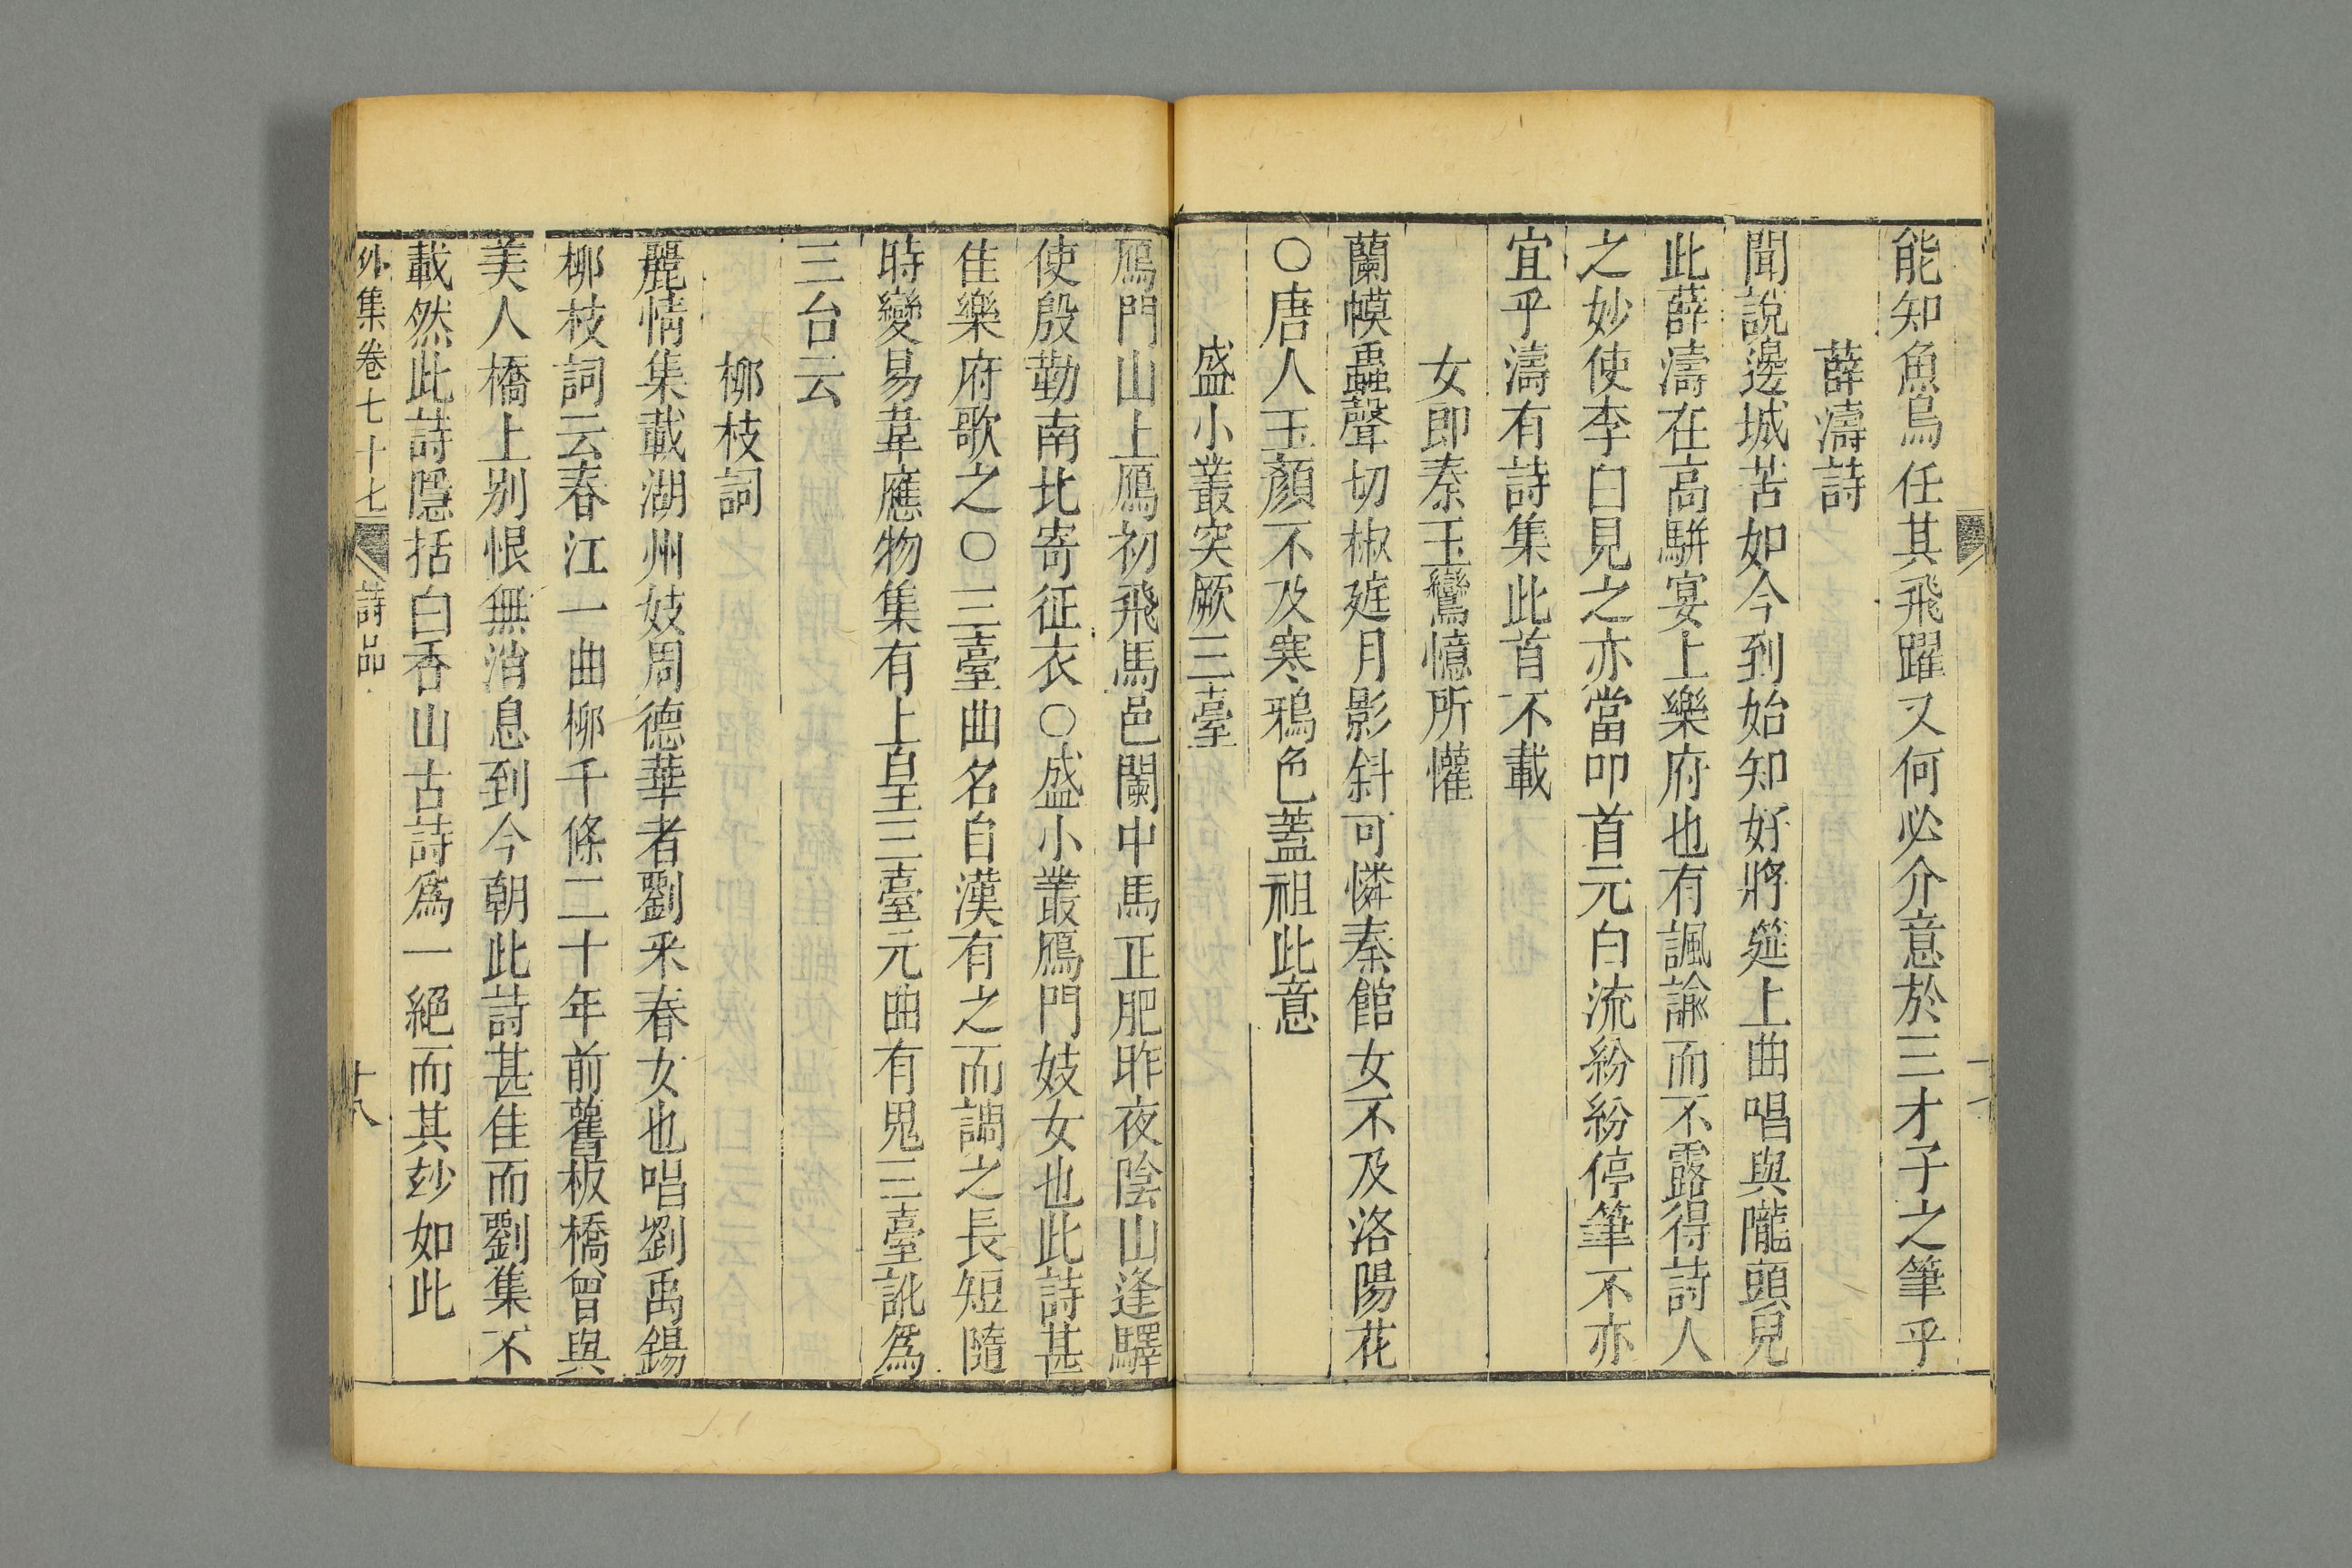 能知魚鳥任其飛躍又何必介意於三才子之筆乎
薛濤詩
聞說邊城苦如今到始知好將筵上曲唱與隴頭兒
此薛濤在高駢宴上樂府也有諷諭而不露得詩人
之妙使李白見之亦當叩首元白流紛紛停筆不亦
宜乎濤有詩集此首不載
女郎秦玉鸞憶所懽
蘭幙蟲聲切椒庭月影斜可憐秦館女不及洛陽花
○唐人玉顏不及寒鴉色蓋祖此意
盛小叢突厥三臺
鴈門山上鴈初飛馬邑闌中馬正肥昨夜陰山逢驛
使殷勤南北寄征衣○盛小叢鴈門妓女也此詩甚
佳樂府歌之○三臺曲名自漢有之而調之長短隨
時變易韋應物集有上皇三臺元曲有鬼三臺訛爲
三台云
柳枝詞
麗情集載湖州妓周德華者劉采春女也唱劉禹錫
柳枝詞云春江一曲柳千條二十年前舊板橋曾與
美人橋上別恨無消息到今朝此詩甚佳而劉集不
載然此詩隱括白香山古詩爲一絕而其玅如此
外集卷七十七 詩品 十八